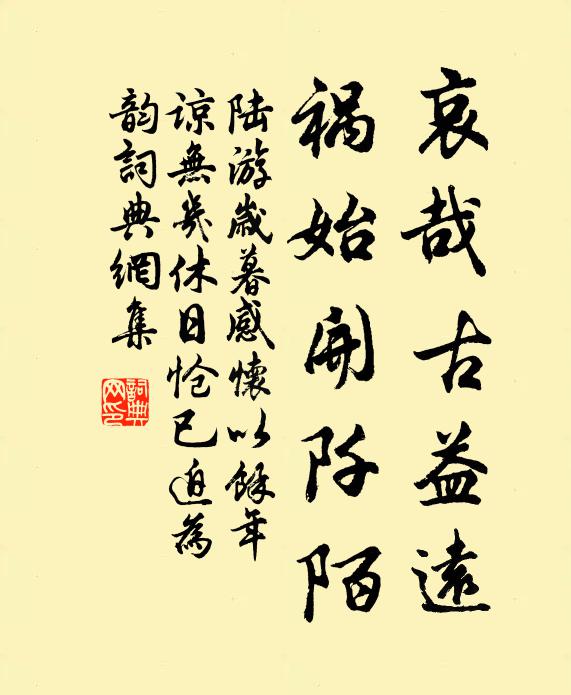 哀哉古益遠
禍始開阡陌
陆游歲暮感懷以餘年
諒無幾休日愴已迫為
韵詞典網集
詞典网印